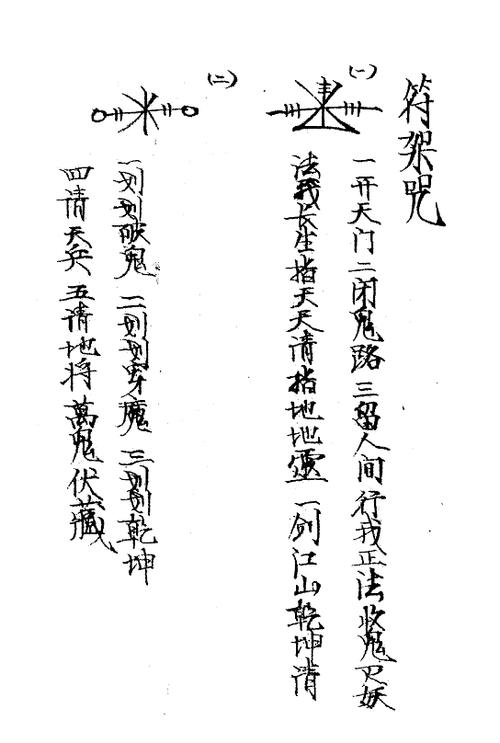 符架咒
(一)
一开天门二闭鬼路三留人间行我正法收鬼灭妖
法我长生指天天清指地地灵一剑江山乾坤清
(二)
一划划破鬼 二划划穿魔 三划划乾坤
四请天兵 五请地将 萬鬼伏藏